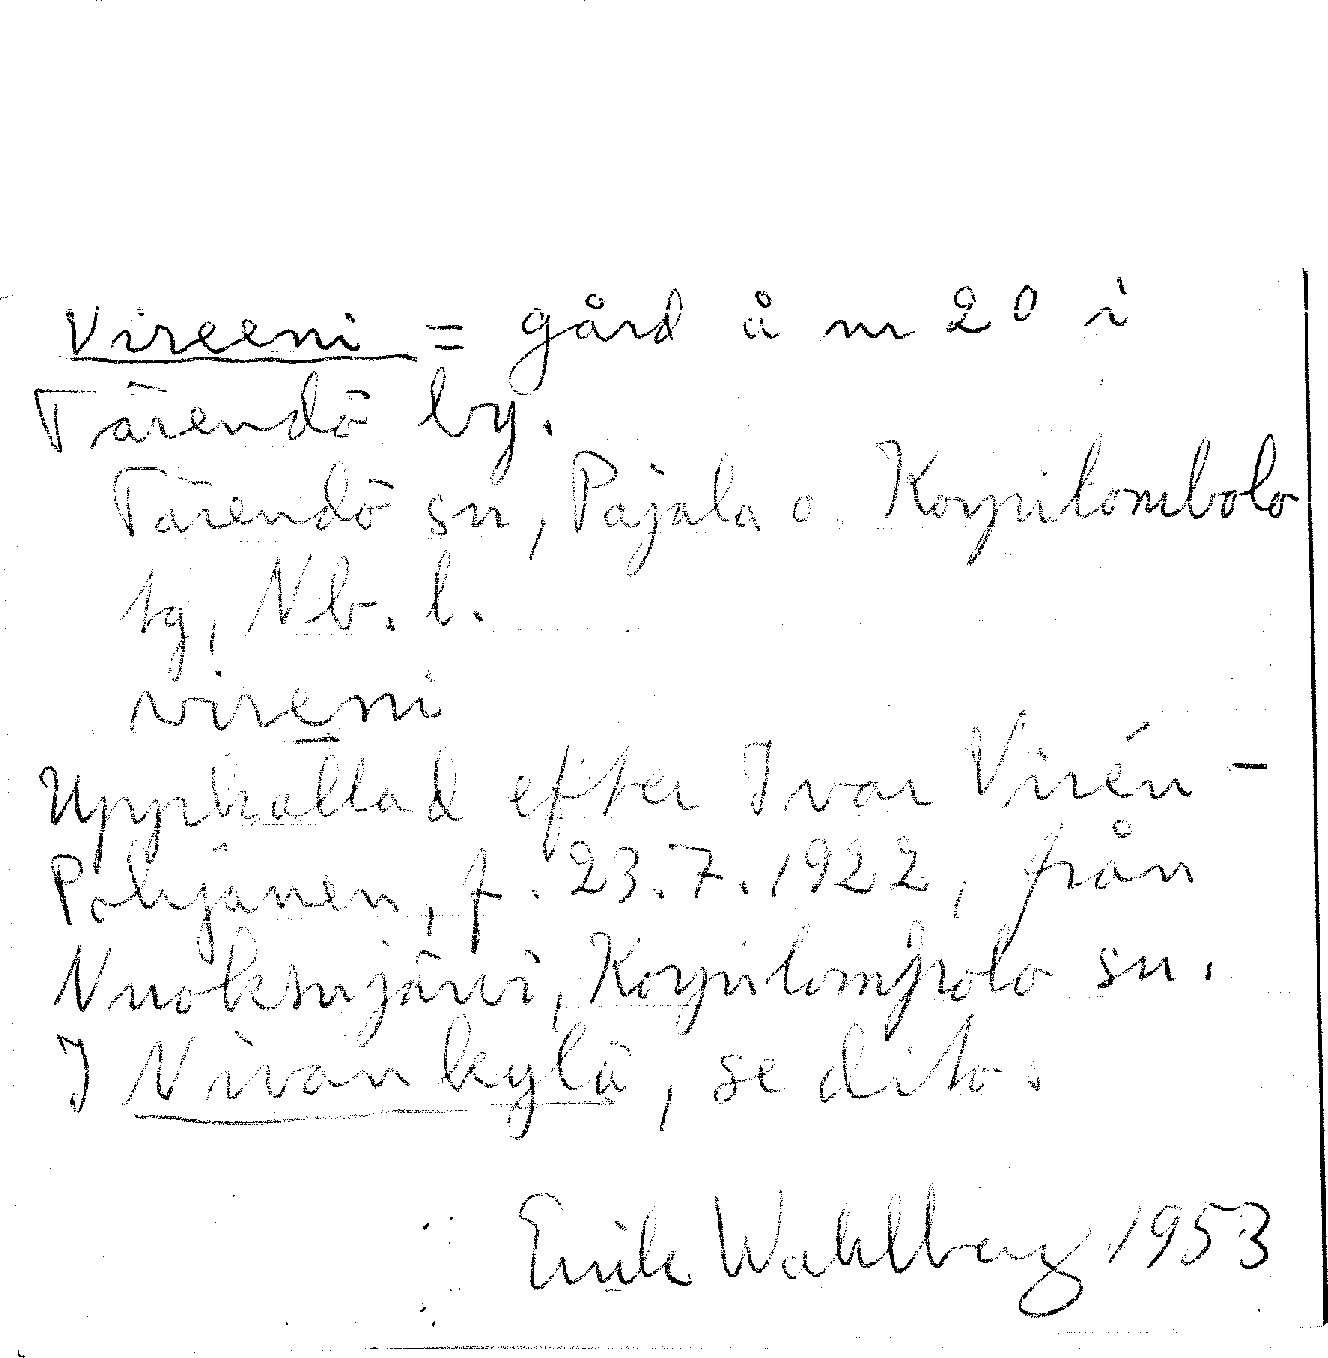 Vireeni = gård å nr 20 i
Tärendö by.
Tärendö sn, Pajala o. Korpilombolo
tg, Nb. l.
vireni
Uppkallad efter Ivar Virén-
Pohjanen, f. 23.7.1922, från
Nuoksujärvi, Korpilompolo sn.
I Nivankylä, se dito.
Erik Wahlberg 1953